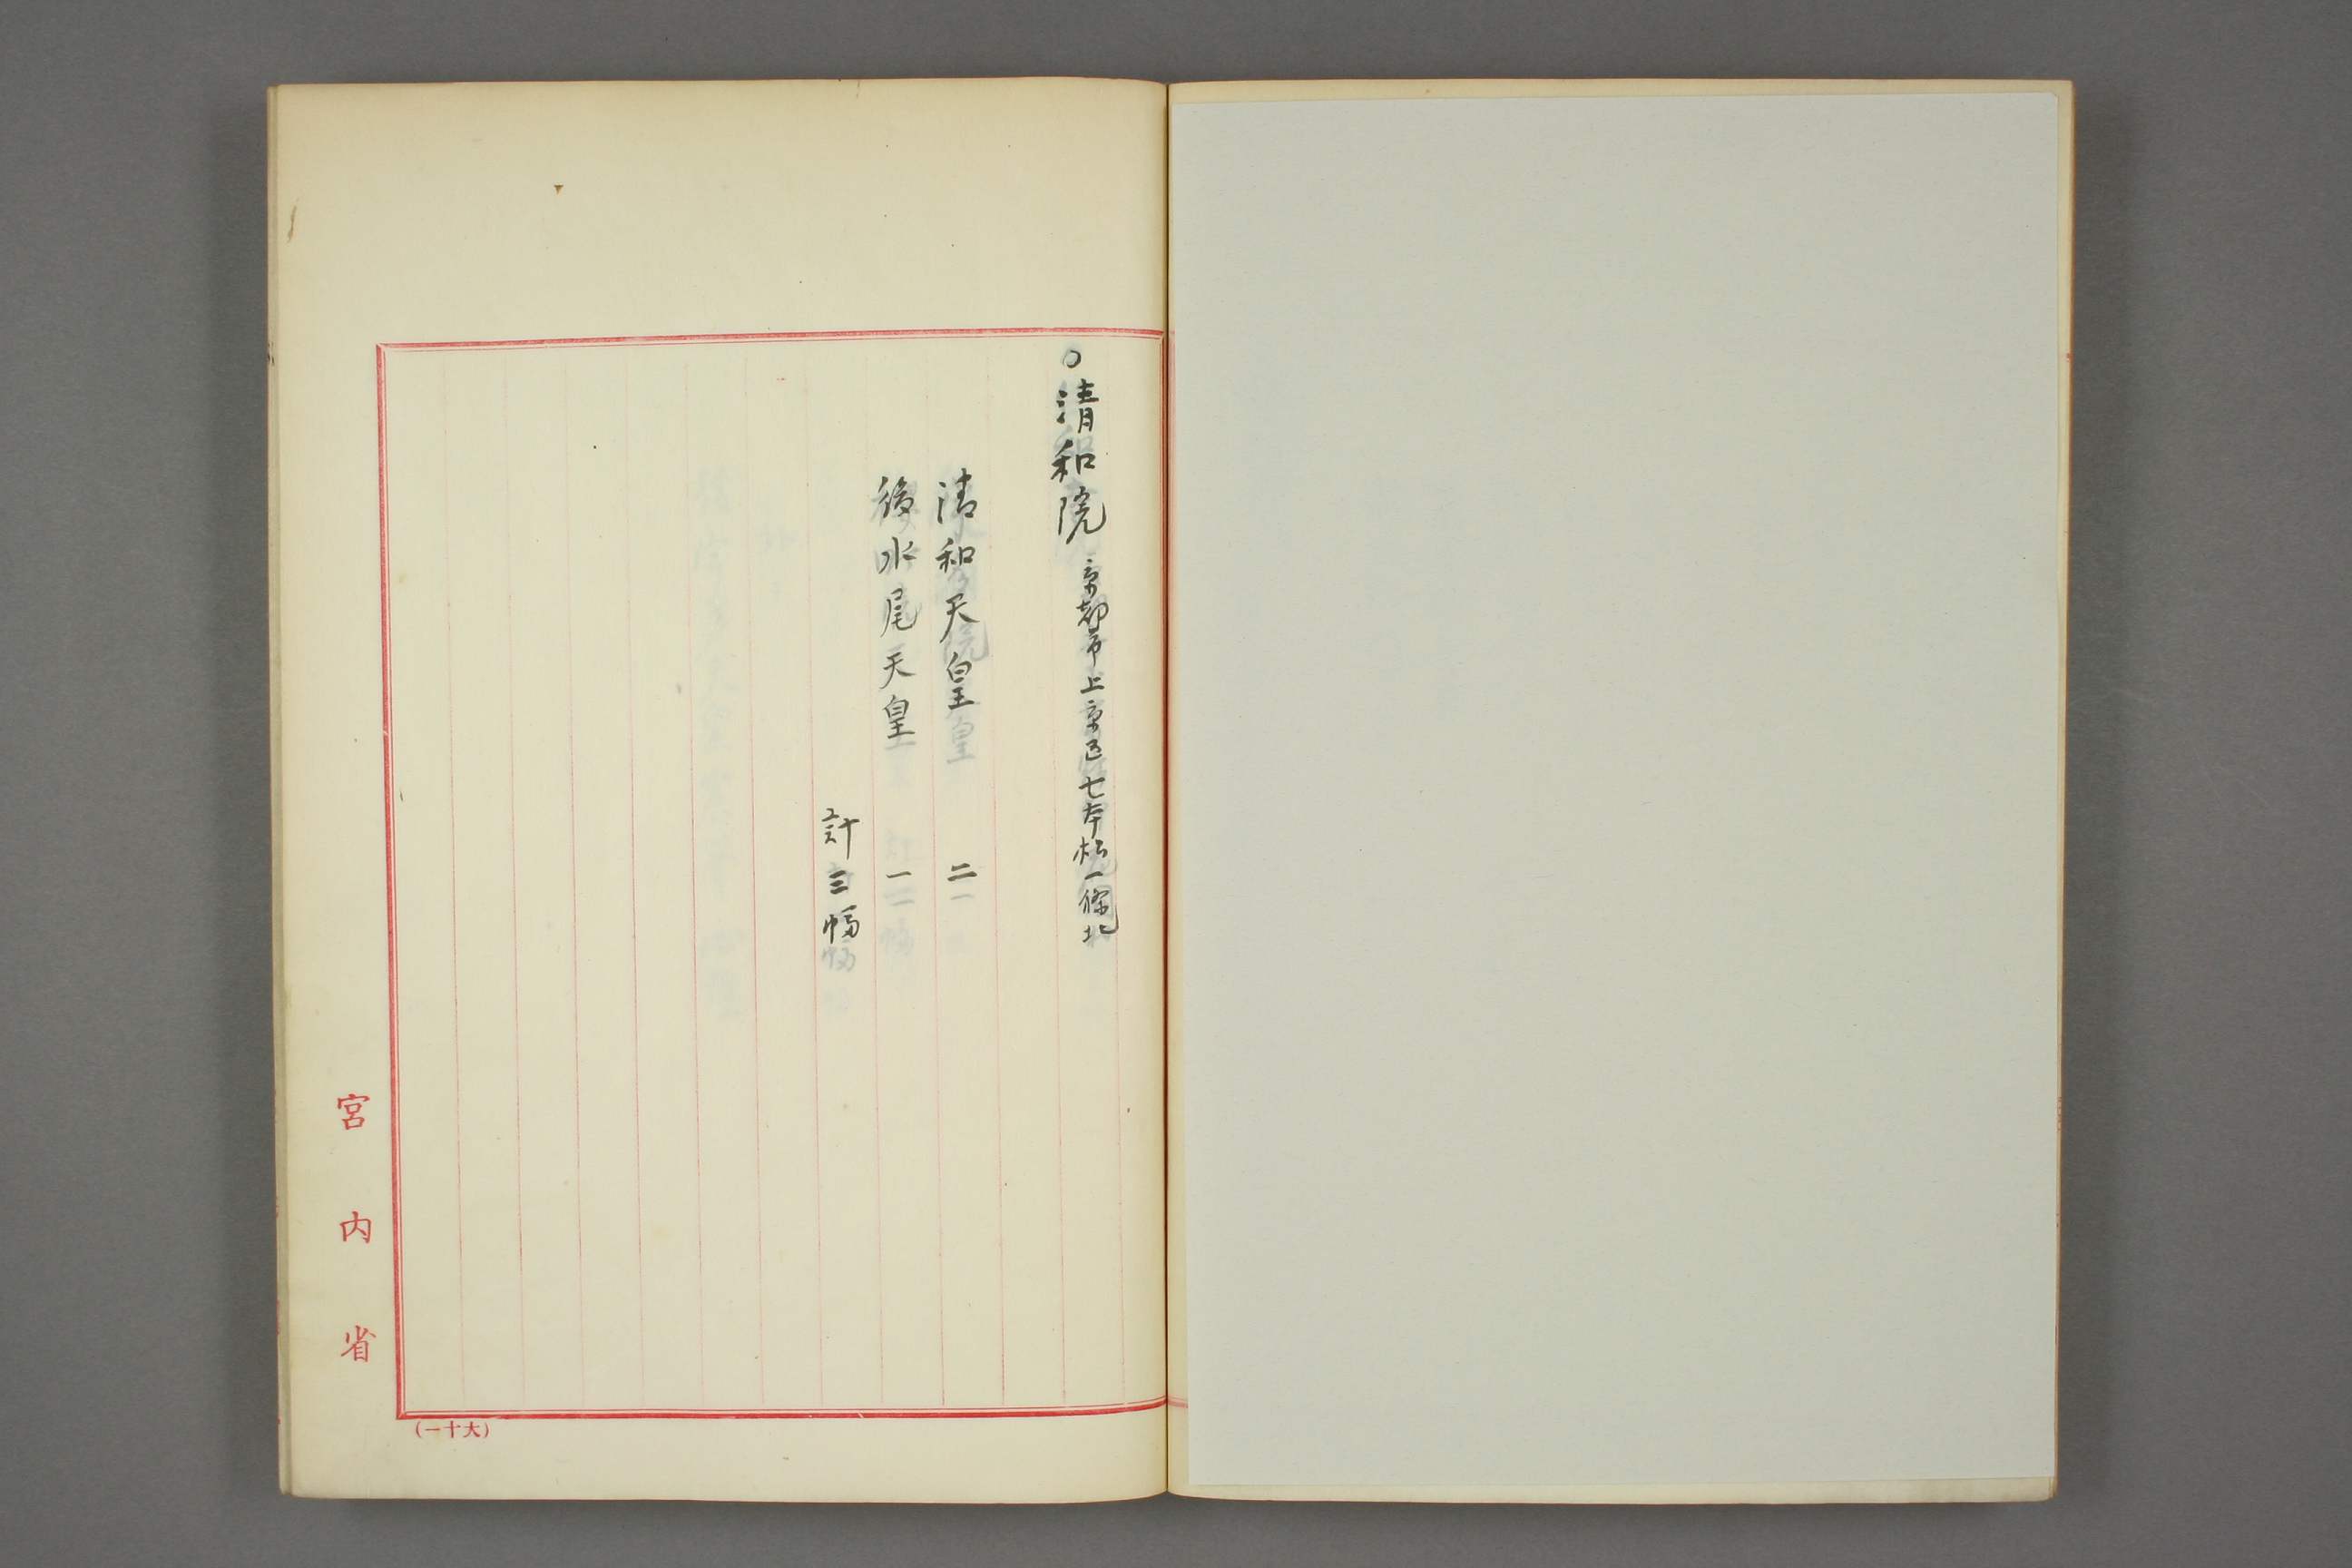 ○清和院 京都市上京区七本松一條北
清和天皇 二
後水尾天皇 一
計三幅
宮内省
(大十一)